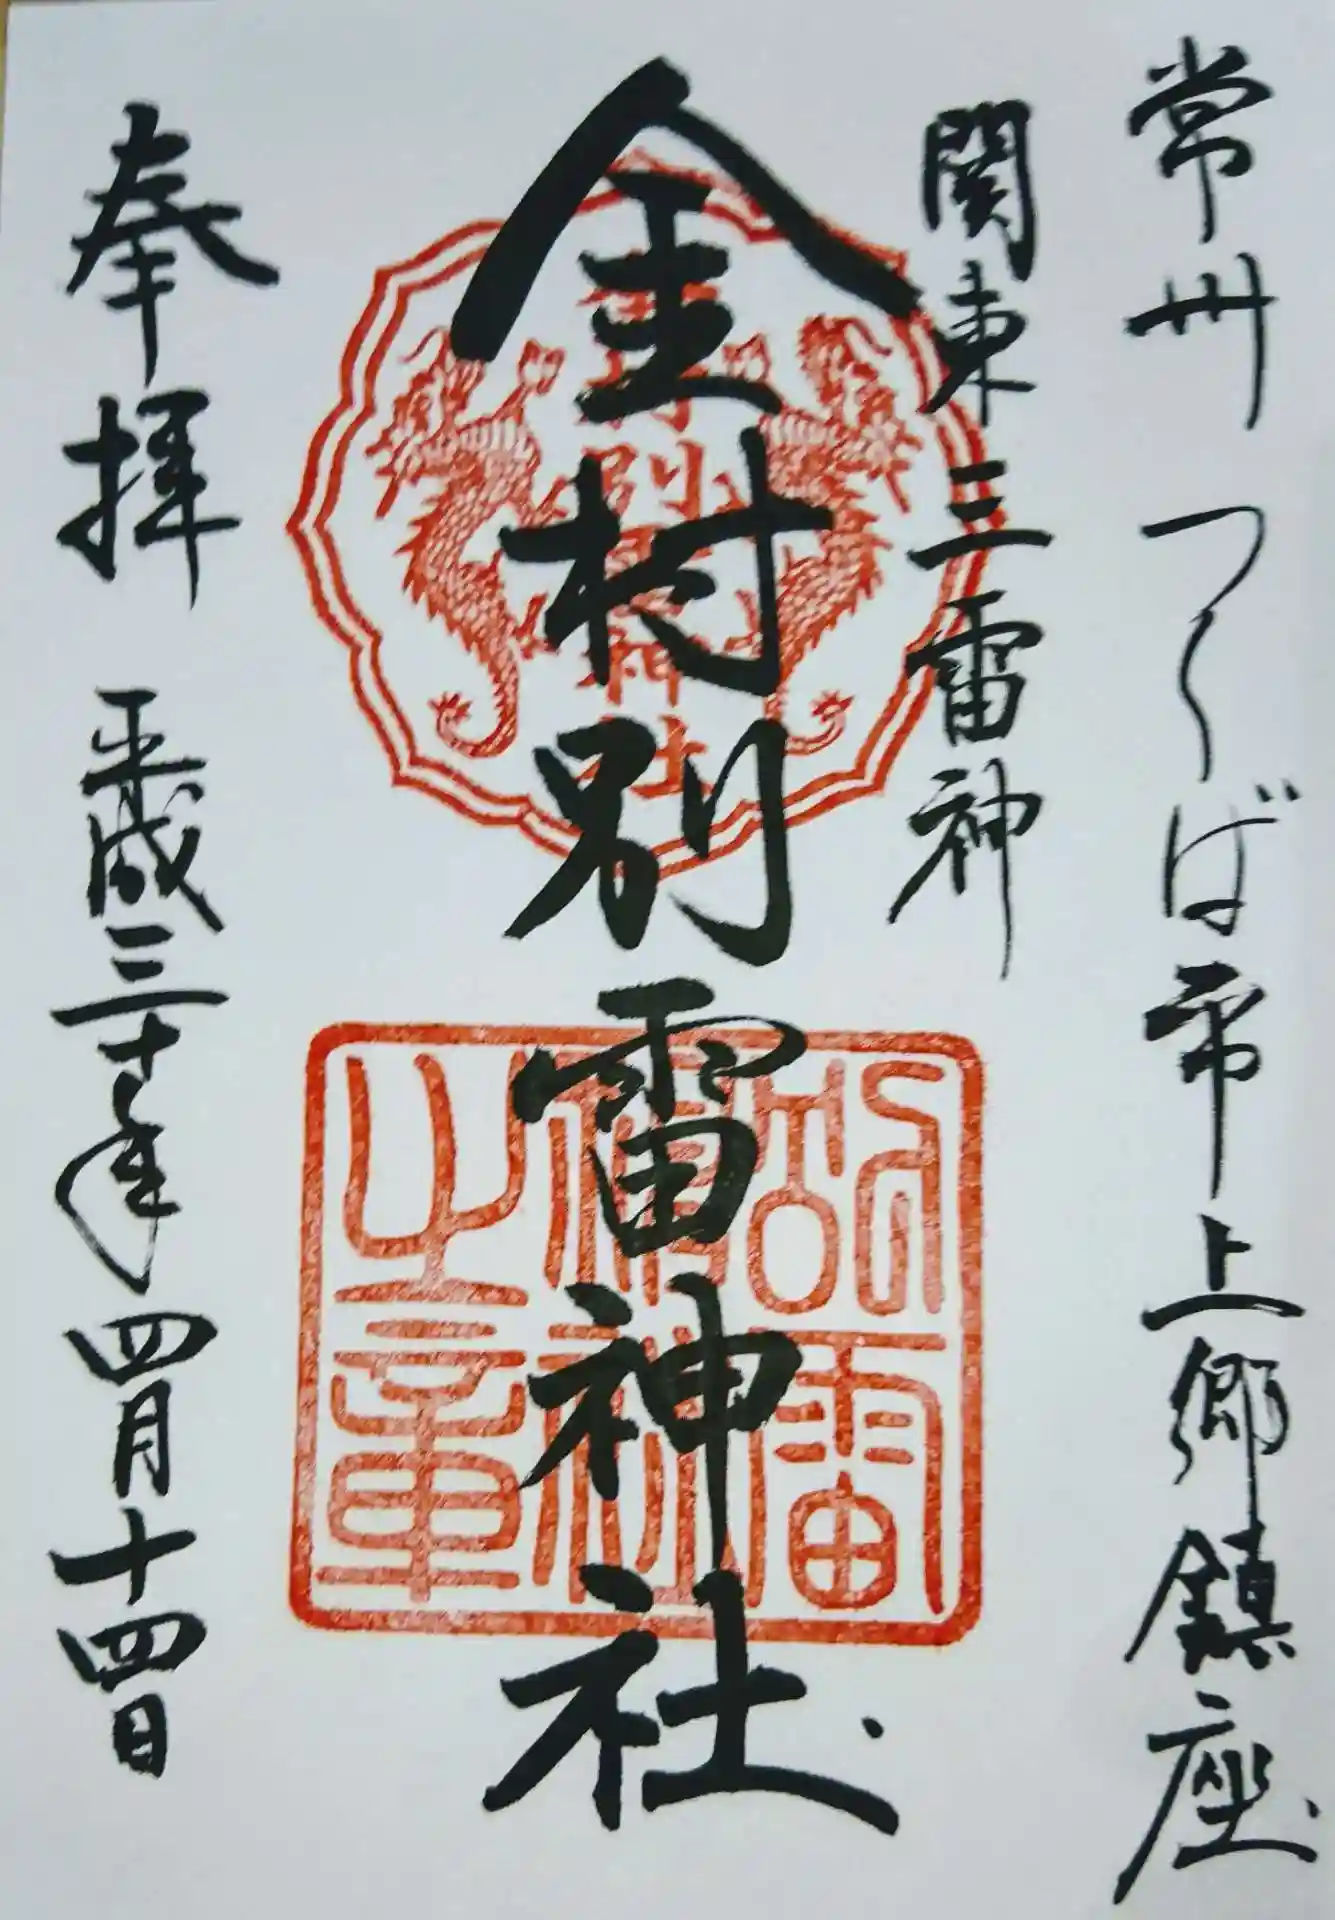 常州つくば市上郷鎮座
関東三雷神
金村別雷神社
別雷神社
別雷神社之章
奉拝 平成三十年四月十四日